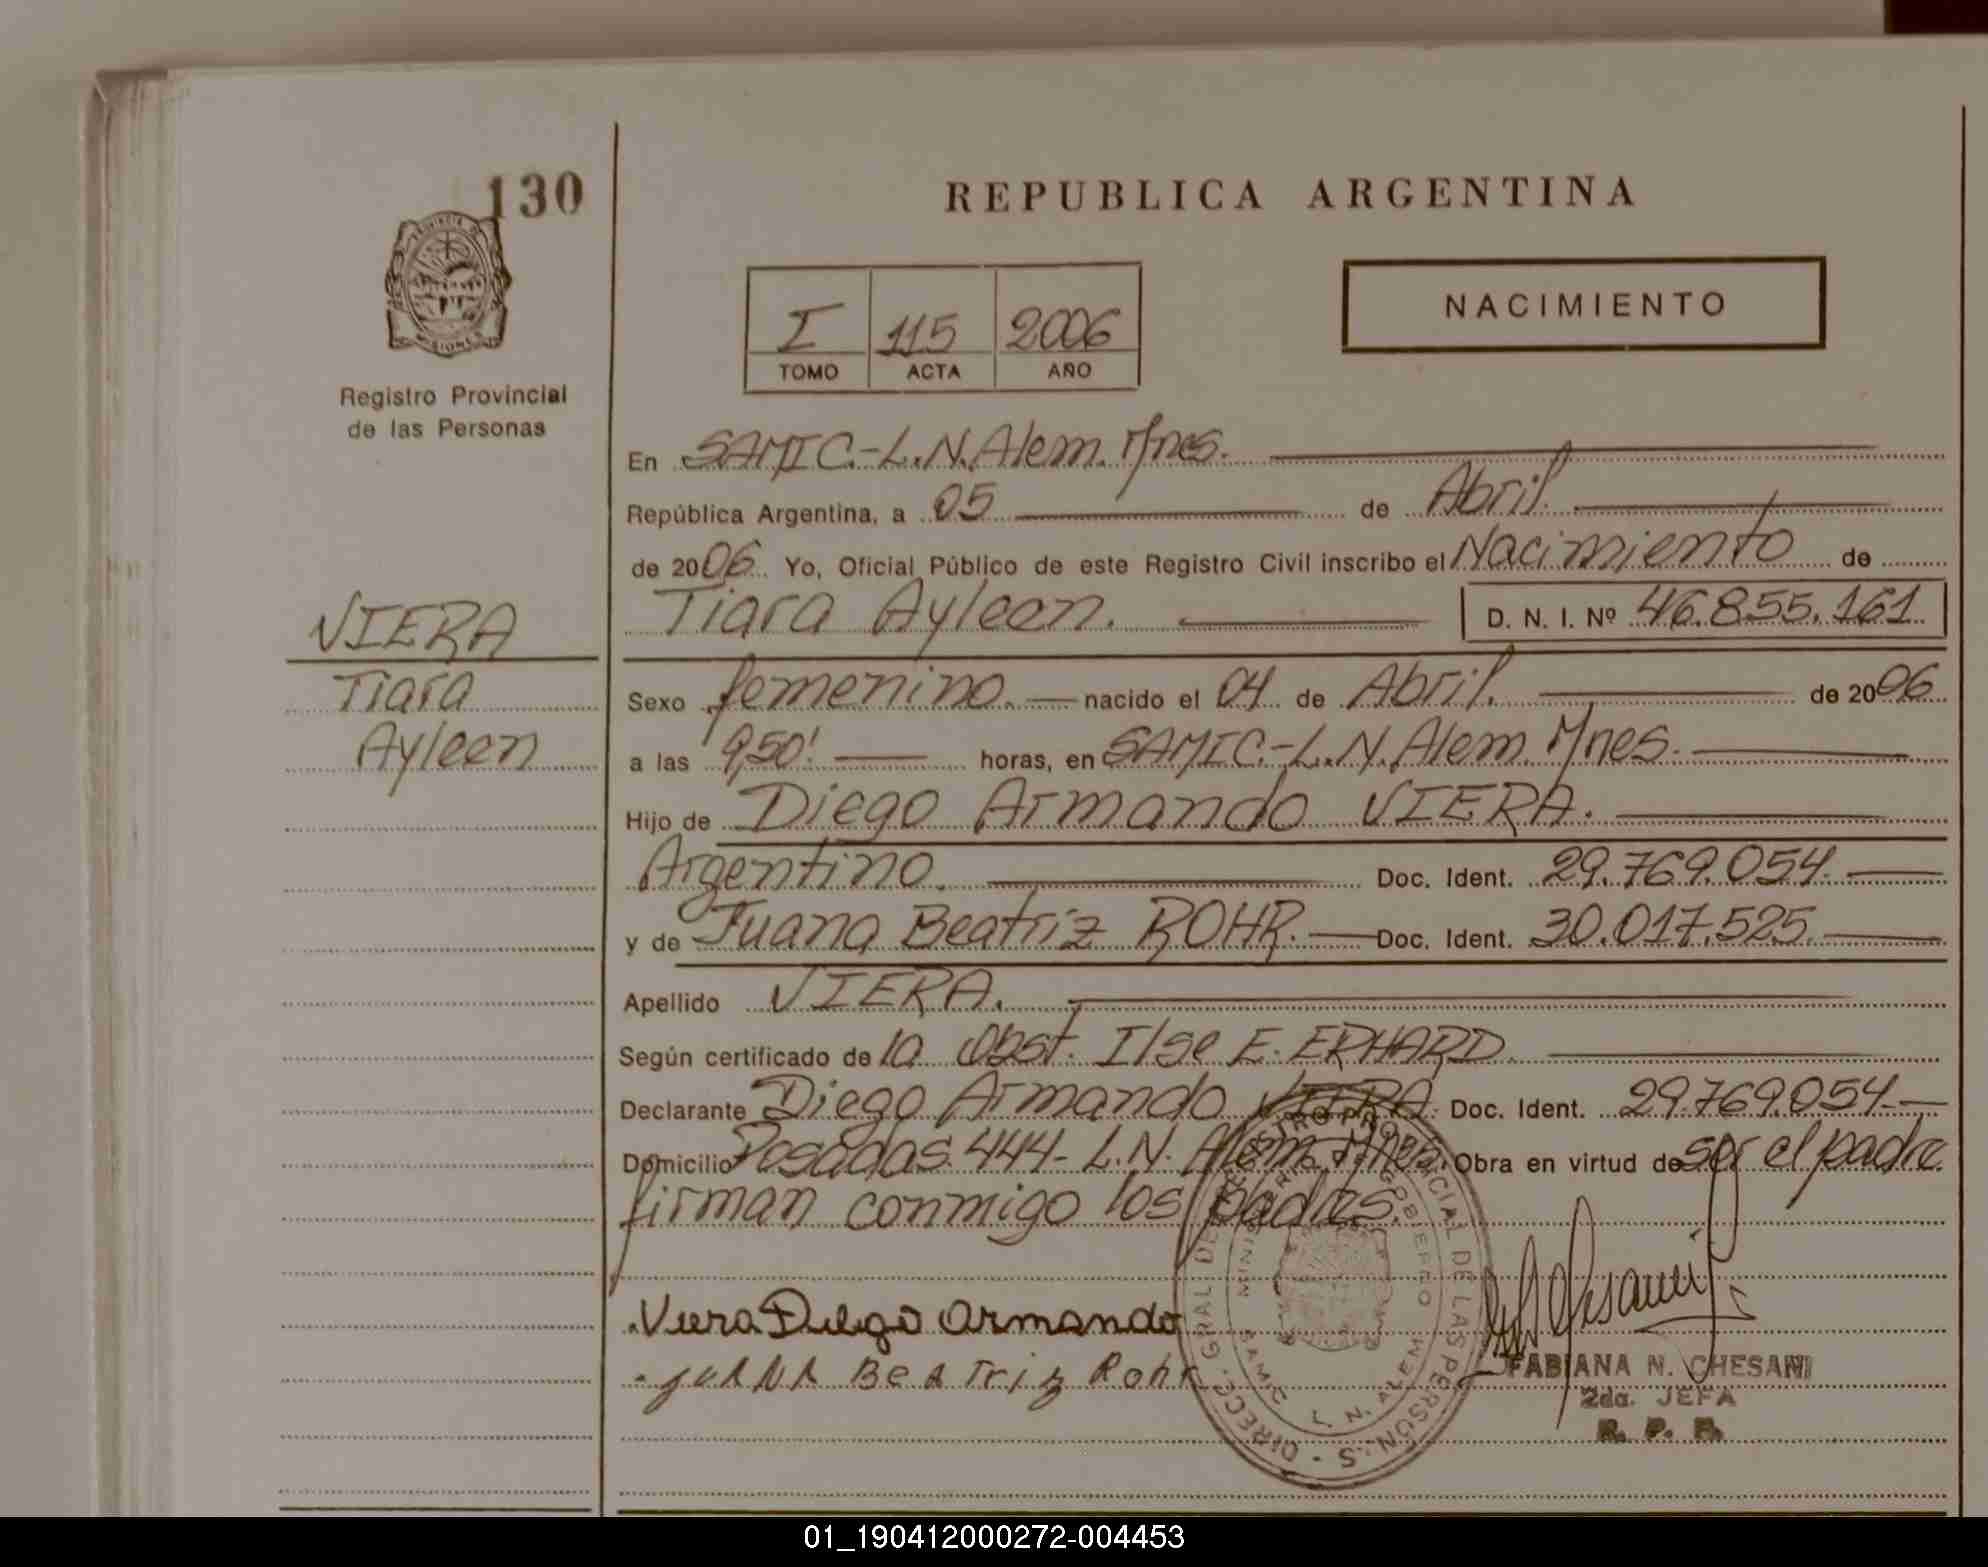 130
REPUBLICA ARGENTINA
PROVINCIA DE
MISIONES
Registro Provincial
de las Personas
I 115 2006
TOMO ACTA AÑO
NACIMIENTO
En SAMIC.-L.N.Alem. Mnes.
República Argentina, a 05 de Abril.
de 2006. Yo, Oficial Público de este Registro Civil inscribo el Nacimiento de
Tiara Ayleen. D. N. I. Nº 46.855.161
VIERA
Tiara
Ayleen
Sexo femenino. nacido el 04 de Abril. de 2006
a las 9,50' horas, en SAMIC.-L.N.Alem. Mnes.
Hijo de Diego Armando VIERA.
Argentino. Doc. Ident. 29.769.054.
y de Juana Beatriz ROHR. Doc. Ident. 30.017.525.
Apellido VIERA.
Según certificado de la Obst. Ilse E. ERHARD.
Declarante Diego Armando VIERA. Doc. Ident. 29.769.054.
Domicilio Posadas 444- L.N. Alem. Mnes. Obra en virtud de ser el padre
firman conmigo los padres.
Viera Diego Armando
Juana Beatriz Rohr
DIRECC. GRAL. DEL REGISTRO PROVINCIAL DE LAS PERSONAS
SAMIC
L. N. ALEM
FABIANA N. CHESANI
2da. JEFA
R. P. P.
01_190412000272-004453